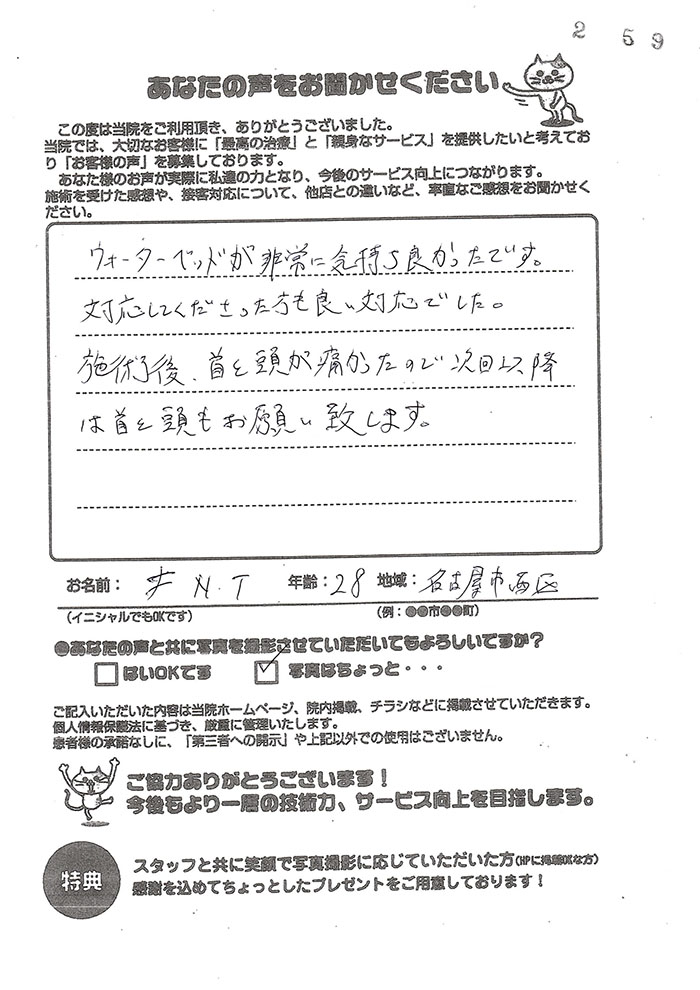 2 59
あなたの声をお聞かせください
この度は当院をご利用頂き、ありがとうございました。
当院では、大切なお客様に「最高の治療」と「親身なサービス」を提供したいと考えてお
り「お客様の声」を募集しております。
あなた様のお声が実際に私達の力となり、今後のサービス向上につながります。
施術を受けた感想や、接客対応について、他店との違いなど、率直なご感想をお聞かせく
ださい。
ウォーターベッドが非常に気持ち良かったです。
対応してくださった方も良い対応でした。
施術後、首と頭が痛かったので次回以降
は首と頭もお願い致します。
お名前： N.T 年齢：28 地域：名古屋市西区
（イニシャルでもOKです） （例：●●市●●町）
●あなたの声と共に写真を撮影させていただいてもよろしいですか？
はいOKです 写真はちょっと・・・
ご記入いただいた内容は当院ホームページ、院内掲載、チラシなどに掲載させていただきます。
個人情報保護法に基づき、厳重に管理いたします。
患者様の承諾なしに、「第三者への開示」や上記以外での使用はございません。
ご協力ありがとうございます！
今後もより一層の技術力、サービス向上を目指します。
特典
スタッフと共に笑顔で写真撮影に応じていただいた方（HPに掲載OKな方）
感謝を込めてちょっとしたプレゼントをご用意しております！